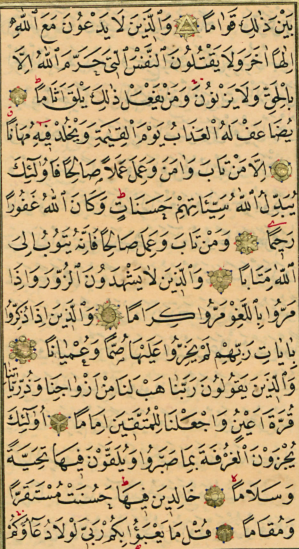 بَيْنَ ذٰلِكَ قَوَامًا وَالَّذِينَ لَا يَدْعُونَ مَعَ اللّٰهِ
اِلٰهًا اٰخَرَ وَلَا يَقْتُلُونَ النَّفْسَ الَّتِى حَرَّمَ اللّٰهُ اِلَّا
بِالْحَقِّ وَلَا يَزْنُونَ وَمَنْ يَفْعَلْ ذٰلِكَ يَلْقَ اَثَامًا
يُضَاعَفْ لَهُ الْعَذَابُ يَوْمَ الْقِيٰمَةِ وَيَخْلُدْ فِيهِ مُهَانًا
اِلَّا مَنْ تَابَ وَاٰمَنَ وَعَمِلَ عَمَلًا صَالِحًا فَاُولٰئِكَ
يُبَدِّلُ اللّٰهُ سَيِّئَاتِهِمْ حَسَنَاتٍ وَكَانَ اللّٰهُ غَفُورًا
رَحِيمًا وَمَنْ تَابَ وَعَمِلَ صَالِحًا فَاِنَّهُ يَتُوبُ اِلَى
اللّٰهِ مَتَابًا وَالَّذِينَ لَا يَشْهَدُونَ الزُّورَ وَاِذَا
مَرُّوا بِاللَّغْوِ مَرُّوا كِرَامًا وَالَّذِينَ اِذَا ذُكِّرُوا
بِاٰيَاتِ رَبِّهِمْ لَمْ يَخِرُّوا عَلَيْهَا صُمًّا وَعُمْيَانًا
وَالَّذِينَ يَقُولُونَ رَبَّنَا هَبْ لَنَا مِنْ اَزْوَاجِنَا وَذُرِّيَّاتِنَا
قُرَّةَ اَعْيُنٍ وَاجْعَلْنَا لِلْمُتَّقِينَ اِمَامًا اُولٰئِكَ
يُجْزَوْنَ الْغُرْفَةَ بِمَا صَبَرُوا وَيُلَقَّوْنَ فِيهَا تَحِيَّةً
وَسَلَامًا خَالِدِينَ فِيهَا حَسُنَتْ مُسْتَقَرًّا
وَمُقَامًا قُلْ مَا يَعْبَؤُا بِكُمْ رَبِّى لَوْلَا دُعَاؤُكُمْ